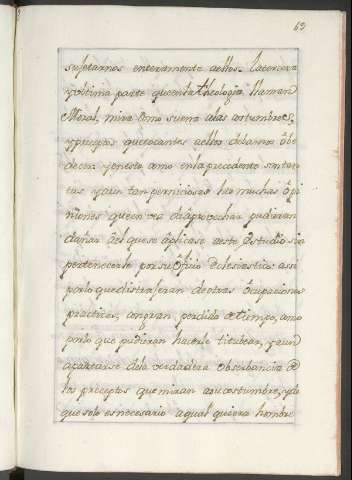 69
sujetarnos enteramente aellos. la tercera
y vltima parte que en la theologia llaman
Moral, mira como suena a las costumbres,
y preceptos que tocantes a ello debamos obe
decer. y en esto como en la precedente son tan
tas y aun tan perniciosas las muchas opi
niones que en vez de aprovechar pudieran
dañar al que se aplicase a este Estudio sin
pertenecerle por su Oficio Eclesiastico: assi
por lo que distraseran de otras Ocupaciones
practicas, con gran perdida de tiempo, como
por lo que pudieran hacerle titubear, y aun
apartarse de la verdadera observancia de
los preceptos que miran a su costumbre, y de
que solo es necesario a qualquiera hombre